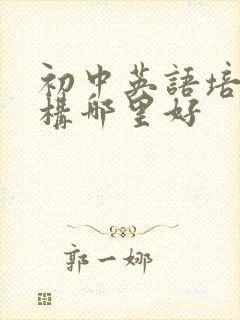 初中英語培
構哪里好
郭一娜